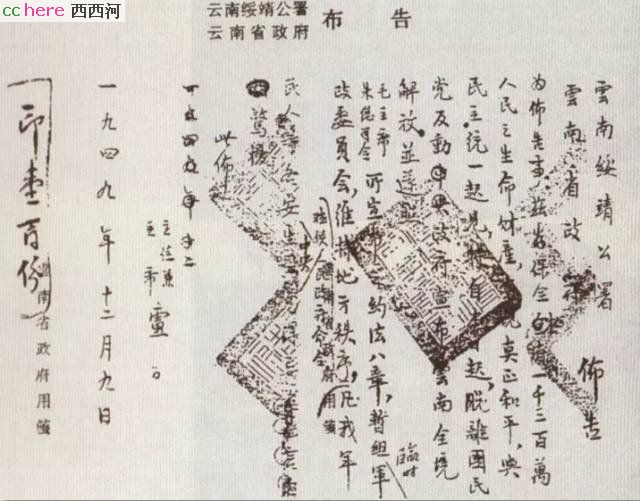 cchere 西西河
云南绥靖公署
云南省政府
布告
雲南綏靖公署
佈告
雲南省政
為佈告事,茲為保全一千三百萬
人民之生命財產,真正和平,與
民主統一起見,特自起,脫離國民
黨反動中央政府宣布雲南全境
解放,並遵
毛主席
朱總司令
所宣布約法八章,暫組軍
臨時
政委員會,維持地方秩序,凡我軍
民人等各安生
驚擾
此佈
主任兼
主席
盧
一九四九年十二月九日
印壹百份
南省政府用箋